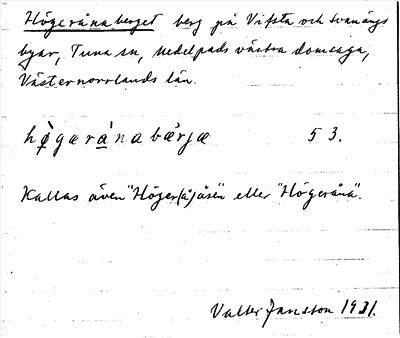 Högerånaberget berg på Vifsta och Svanängs
byar, Tuna sn, Medelpads västra domsaga,
Västernorrlands län.
hø̀gærànabærjæ 53.
Kallas även "Höger(å)åsen" eller "Högerånä".
Valter Jansson 1931.